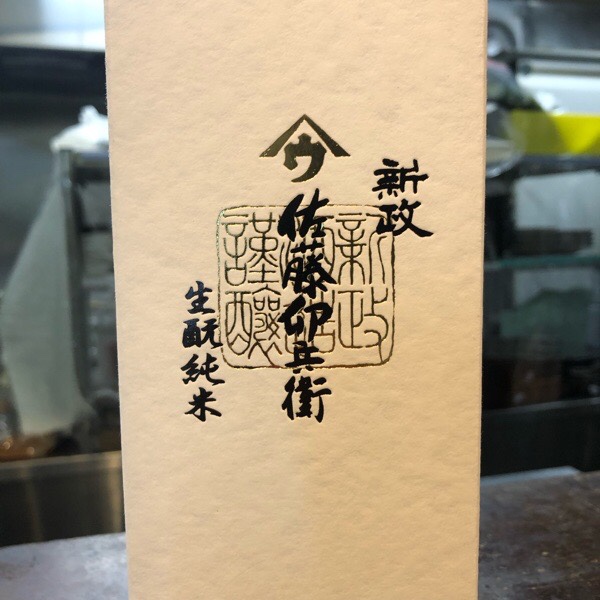 新政
ウ
佐藤卯兵衛
生酛純米
新政
謹醸